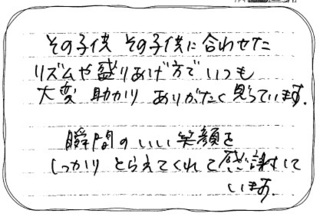 その子供 その子供に合わせた
リズムや盛りあげ方で いつも
大変 助かり ありがたく 思っています.
瞬間の いい 笑顔を
しっかり とらえてくれて 感謝して
います.